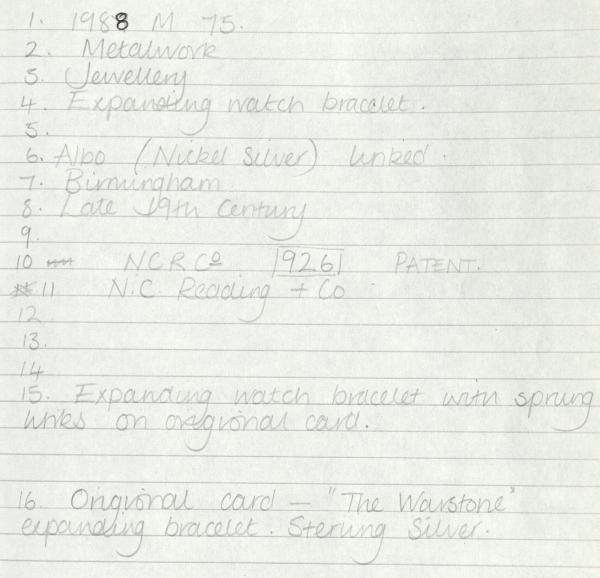 1. 1988 M 75.
2. Metalwork
3. Jewellery
4. Expanding watch bracelet.
5.
6. Albo (Nickel Silver) linked.
7. Birmingham
8. Late 19th Century
9.
10 NCR Co 9261 PATENT.
11 N.C. Reading + Co
12
13.
14
15. Expanding watch bracelet with sprung
links on origional card.
16. Origional card - "The Warstone"
expanding bracelet. Sterling Silver.